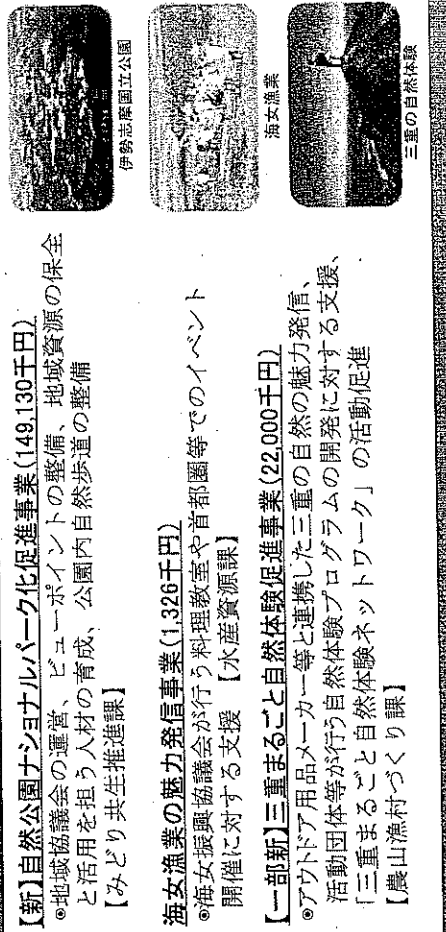 【新】自然公園ナショナルパーク化促進事業(149,130千円)
◉地域協議会の運営、ビューポイントの整備、地域資源の保全
と活用を担う人材の育成、公園内自然歩道の整備
【みどり共生推進課】
海女漁業の魅力発信事業(1,326千円)
◉海女振興協議会が行う料理教室や首都圏等でのイベント
開催に対する支援 【水産資源課】
【一部新】三重まるごと自然体験促進事業(22,000千円)
◉アウトドア用品メーカー等と連携した三重の自然の魅力発信、
活動団体等が行う自然体験プログラムの開発に対する支援、
「三重まるごと自然体験ネットワーク」の活動促進
【農山漁村づくり課】
伊勢志摩国立公園
海女漁業
三重の自然体験